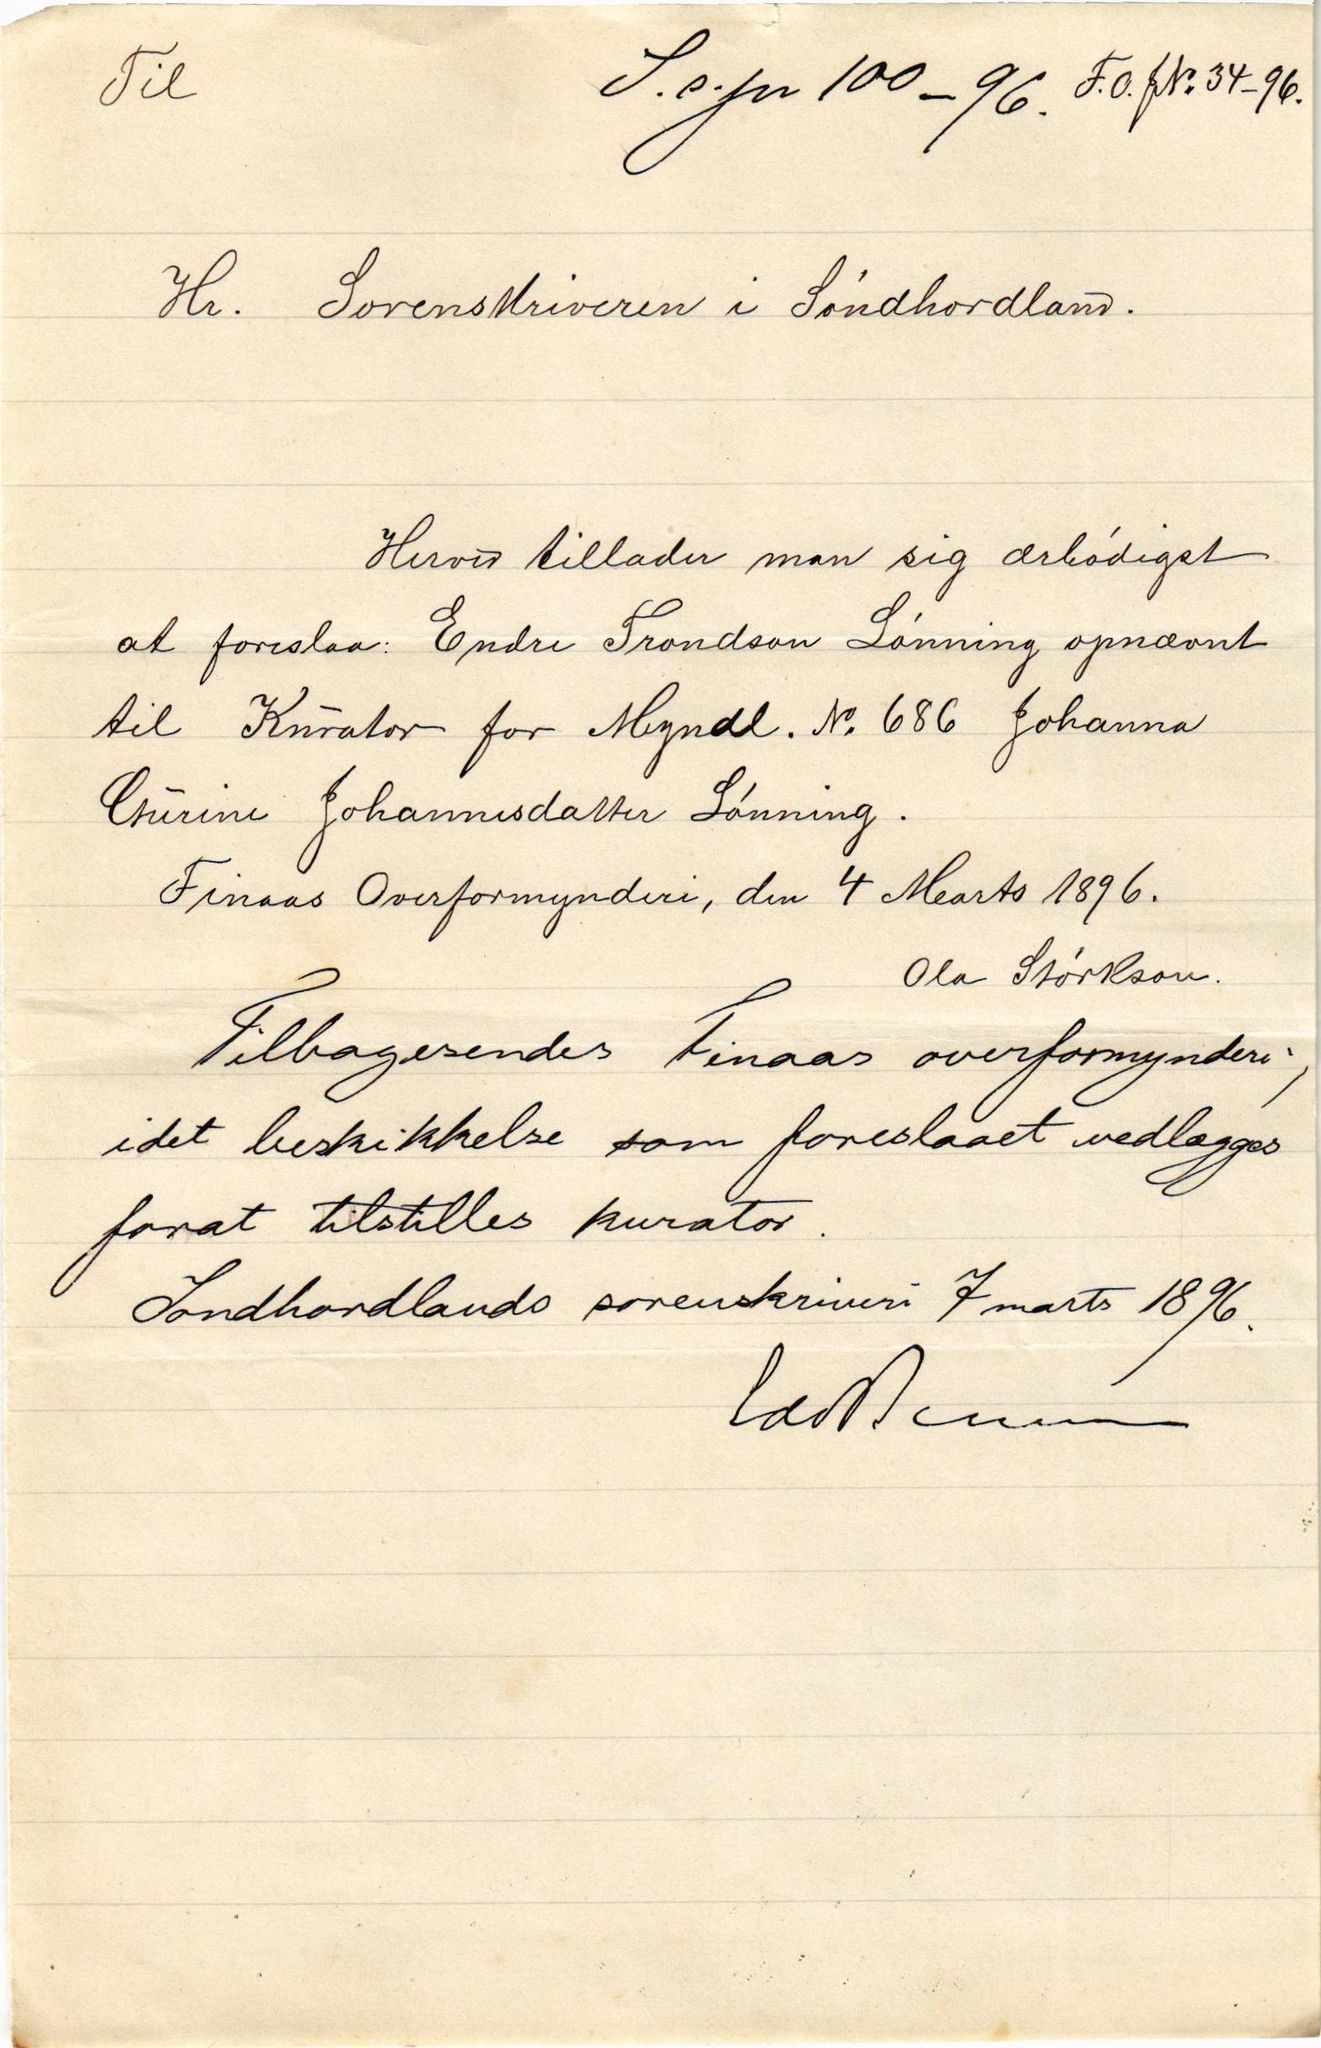 Til
S.s.jn 100–96. F.O.fNº. 34–96.
Hr. Sorenskriveren i Söndhordland.
Herved tillader man sig ærbödigst
at foreslaa: Endre Trondson Lönning opnævnt
til Kurator for Myndl. Nº. 686 Johanna
Gurine Johannesdatter Lönning.
Finaas Overformynderi, den 4 Marts 1896.
Ola Störkson.
Tilbagesendes Finaas overformynderi,
idet beskikkelse som foreslaaet vedlægges
forat tilstilles kurator.
Söndhordlands sorenskriveri 7 marts 1896.